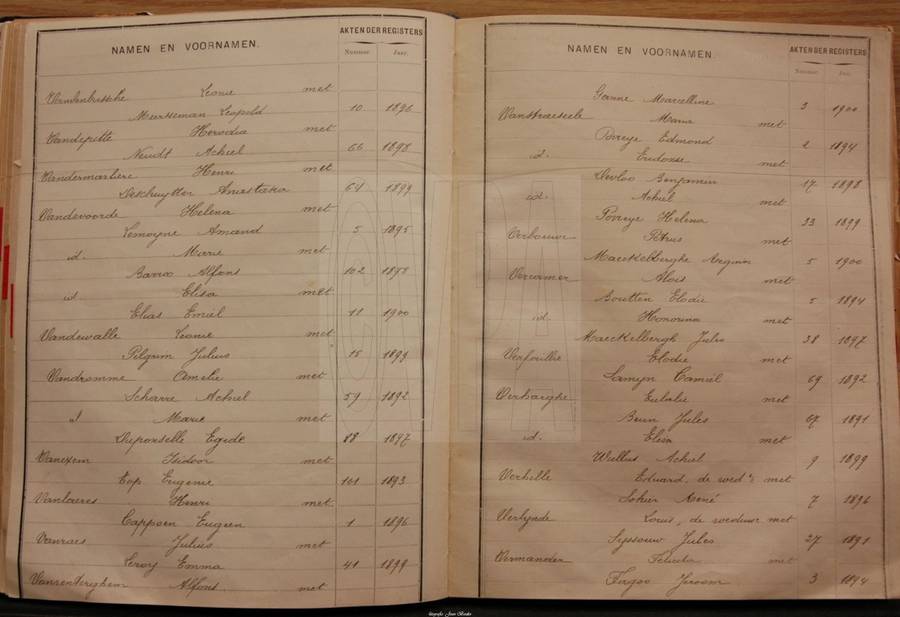 NAMEN EN VOORNAMEN.
AKTEN DER REGISTERS
Nummer Jaar
Vandenbussche Leonie met
Meurseman Leopold 10 1896
Vandeputte Herodia met
Neudt Achiel 66 1898
Vandermarliere Henri met
Dekhuytter Anastasia 64 1899
Vandevoorde Helena met
Lemoyne Amand 5 1895
id. Marie met
Barra Alfons 102 1898
id. Elisa met
Elias Emiel 11 1900
Vandewalle Leonie met
Pilgrim Julius 15 1899
Vandromme Amelie met
Scharre Achiel 59 1892
id Marie met
Dieponselle Egide 88 1897
Vanexem Isidoor met
Top Eugenie 101 1893
Vanlaeres Henri met
Cappoen Eugeen 1 1896
Vanraes Julius met
Leroy Emma 41 1899
Vanrenterghem Alfons met
NAMEN EN VOORNAMEN.
AKTEN DER REGISTERS
Nummer Jaar
Ganne Marcelline 3 1900
Vanstraeseele Maria met
Povreye Edmond 2 1894
id. Eudoxie met
Devloo Benjamin 17 1898
id. Achiel met
Povreye Helena 33 1899
Verbouwe Petrus met
Maeckelberghe 5 1900
Alois met
Boutten Elodie 5 1894
id. Honorina met
Maeckelbergh Jules 38 1897
Verfaillie Elodie met
Samyn Camiel 69 1892
Verhaeghe Eulalie met
Beun Jules 67 1891
id. Elisa met
Wullus Achiel 9 1899
Verhelle Eduard, de wed.e met
Sohier René 7 1896
Verlynde Louis, de weduwe met
Syssouw Jules 27 1891
Vermander Felicite met
Jeroom 3 1894